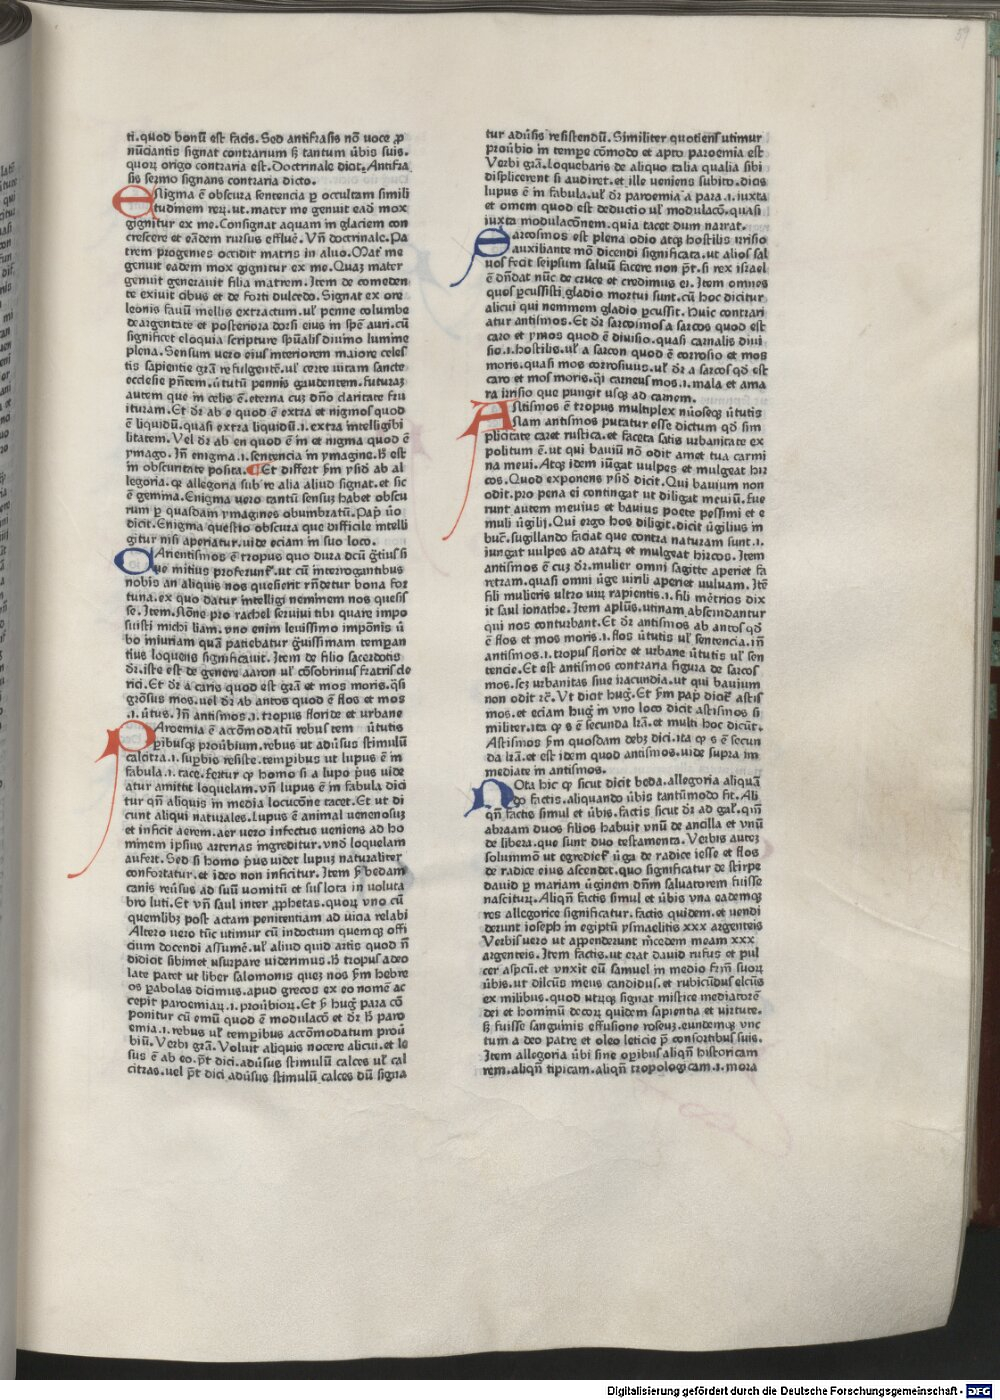 59
ti.quod bonū est facis. Sed antifrasis nō uoce ꝓ
nūciantis signat contrarium sꝫ tantum ūbis suis.
quoꝝ origo contraria est. Doctrinale dicit. Antifra
sis sermo signans contraria dicto.
Enigma ē obscura sentencia ꝑ occultam simili
tudinem reꝝ. ut. mater me genuit eadē mox
gignitur ex me. Consignat aquam in glaciem con
crescere et eādem rursus effluē. Vñ doctrinale. Pa
trem progenies occidit matris in aluo. Mať me
genuit eadem mox gignitur ex me. Quaꝫ mater
genuit generauit filia matrem. Item de comeden
te exiuit cibus et de forti dulcedo. Signat ex ore
leonis fauū mellis extractum. uł penne columbe
deargentate et posteriora dorsi eius in spē auri. cū
significet eloquia scripture spūalis diuino lumine
plena. Sensum uero eius interiorem maiore celes
tis sapientie grā refulgentē. uł certe uitam sancte
ecclesie pñtem. ūtutū pennis gaudentem. futuraꝫ
autem que in celis ē. eterna cuꝫ dño claritate fru
ituram. Et dr̄ ab e quod ē extra et nigmos quod
ē liquidū. quasi extra liquidū .i. extra intelligibi
litatem. Vel dr̄ ab en quod ē in et nigma quod ē
ymago. Iñ enigma .i. sentencia in ymagine. h̄ est
in obscuritate posita. Et differt ſm ysid ab al
legoria. qꝫ allegoria sub re alia aliud signat. et sic
ē gemma. Enigma uero tantū sensus habet obscu
rum ꝑ quasdam ymagines obumbratū. Pap̄ ūo
dicit. Enigma questio obscura que difficile intelli
gitur nisi aperiatur. uide eciam in suo loco.
Carientismos ē tropus quo dura dcū gtius si
ue mitius proferunť. ut cū interrogantibus
nobis an aliquis nos quesierit rñdetur bona for
tuna. ex quo datur intelligi neminem nos quesis
se. Item. Nōne pro rachel seruiui tibi quare impo
suisti michi liam. vno enim leuissimo impōnis ū
bo iniuriam quā patiebatur grauissimam temperan
tius loquens significauit. Item de filio sacerdotis
dr̄. iste est de genere aaron uł cōsobrinus fratris cle
rici. Et dr̄ a caris quod est grā et mos moris. qsi
grōsus mos. uel dr̄ ab antos quod ē flos et mos
.i. ūtus. Iñ antismos .i. tropus floride et urbane
Paroemia ē accōmodatū rebus tem ūtutis
pibusqꝫ prouūbium. rebus ut adūsus stimulū
calcitra .i. supbis resiste. tempibus ut lupus ē in
fabula .i. tace. fertur qꝫ homo si a lupo pus uide
atur amittit loquelam. vñ lupus ē in fabula dici
tur qñ aliquis in media locucōne tacet. Et ut di
cunt aliqui naturales. Lupus ē animal uenenosuꝫ
et inficit aerem. aer uero infectus ueniens ad ho
minem ipsius arterias ingreditur. vnd loquelam
aufert. Sed si homo pus uidet lupuꝫ naturaliter
confortatur. et ideo non inficitur. Item ſm bedam
canis reūsus ad suū uomitū et sus lota in uoluta
bro luti. Et vñ saul inter ꝓphetas. quoꝝ vno cū
quemlibꝫ post actam penitentiam ad uicia relabi
Altero uero tūc utimur cū indoctum quemqꝫ offi
cium docendi assumē. uł aliud quid artis quod ñ
didicit sibimet usurpare uiderimus. h̄ tropus adeo
late patet ut liber salomonis queꝫ nos ſm hebre
os pabolas dicimus. apud grecos ex eo nomē ac
cepit paroemiaꝝ .i. prouūbioꝝ. Et ſm hug para cō
ponitur cū emū quod ē modulacō et dr̄ h̄ paro
emia .i. rebus uł tempibus accōmodatum proū
biū. Verbi grā. Voluit aliquis nocere alicui. et le
sus ē ab eo. pt̄ dici. adūsus stimulū calces uł cal
citras. uel pt̄ dici adūsus stimulū calces dū signa
tur adūsis resistendū. Similiter quotiens utimur
proūbio in tempe cōmodo et apto paroemia est
Verbi grā. loquebaris de aliquo talia qualia sibi
displicerent si audiret. et ille ueniens subito. dicis
lupus ē in fabula. uł dr̄ paroemia a para .i. iuxta
et omen quod est deductio uł modulacō. quasi
iuxta modulacōnem. quia tacet dum narrat.
Sarcosmos est plena odio atqꝫ hostilis irrisio
auxiliante mō dicendi significata. ut alios sal
uos fecit seipsum saluū facere non pt̄. si rex israel
ē dñdat nūc de cruce et credimus ei. Item omnes
quos pcussisti gladio mortui sunt. cū hoc dicitur
alicui qui neminem gladio pcussit. Huic contrari
atur antismos. Et dr̄ sarcosmos a sarcos quod est
caro et ymos quod ē diuisio. quasi carnalis diui
sio .i. hostilis. uł a sarcon quod ē corrosio et mos
moris. quasi mos corrosiuus. uł dr̄ a sarcos qd est
caro et mos moris. qi carneus mos .i. mala et ama
ra irrisio que pungit usqꝫ ad carnem.
Astismos ē tropus multiplex nūoseqꝫ ūtutis
Nam antismos putatur esse dictum qd sim
plicitate caret rustica. et faceta satis urbanitate ex
politum ē. ut qui bauiū nō odit amet tua carmi
na meui. Atqꝫ idem iūgat uulpes et mulgeat hir
cos. Quod exponens ysid dicit. Qui bauium non
odit. pro pena ei contingat ut diligat meuiū. fue
runt autem meuius et bauius poete pessimi et e
muli ūgilij. Qui ergo hos diligit. dicit ūgilius in
buc. sugillando faciat que contra naturam sunt .i.
iungat uulpes ad aratꝝ et mulgeat hircos. Item
antismos ē cuꝫ dr̄. mulier omni sagitte aperiet fa
retram. quasi omni ūge uirili aperiet uuluam. Itē
fili mulieris ultro uiꝝ rapientis .i. fili mētricis dix
it saul ionathe. Item aplūs. utinam abscindantur
qui nos conturbant. Et dr̄ antismos ab antos qd
ē flos et mos moris .i. flos ūtutis uł sentencia. iñ
antismos .i. tropus floride et urbane ūtutis uł sen
tencie. Et est antismos contraria figura de sarcos
mos. scꝫ urbanitas siue iracundia. ut qui bauium
non odit rc̄. Vt dicit hug. Et ſm pap dicit astis
mos. et eciam hug in vno loco dicit astismos si
militer. ita qꝫ s ē secunda lrā. et multi hoc dicūt.
Astismos ſm quosdam debꝫ dici. ita qꝫ s ē secun
da lrā. et est idem quod antismos. uide supra im
mediate in antismos.
Nota hic qꝫ sicut dicit beda. allegoria aliquā
do factis. aliquando ūbis tantūmodo fit. Ali
qñ factis simul et ūbis. factis sicut dr̄ ad gal. qm̄
abraam duos filios habuit vnū de ancilla et vnū
de libera. que sunt duo testamenta. Verbis auteꝫ
solummō ut egredieť ūga de radice iesse et flos
de radice eius ascendet. quo significatur de stirpe
dauid ꝑ mariam ūginem dñm saluatorem fuisse
nasciturꝫ. Aliqñ factis simul et ūbis vna eademqꝫ
res allegorice significatur. factis quidem. et uendi
derunt ioseph in egiptū ysmaelitis xxx argenteis
Verbis uero ut appenderunt mcedem meam xxx
argenteis. Item factis. ut erat dauid rufus et pul
cer aspcū. et vnxit eū samuel in medio frm̄ suoꝝ
ūbis. ut dilcūs meus candidus. et rubicūdus elcūs
ex milibus. quod utrūqꝫ signat mistice mediatorē
dei et hominū decoꝝ quidem sapientia et uirtute.
sꝫ fuisse sanguinis effusione roseuꝫ. eundemqꝫ vnc
tum a deo patre et oleo leticie p̄ consortibus suis.
Item allegoria ūbi siue opibus aliqñ historicam
rem. aliqñ tipicam. aliqñ tropologicam .i. mora
Digitalisierung gefördert durch die Deutsche Forschungsgemeinschaft - DFG